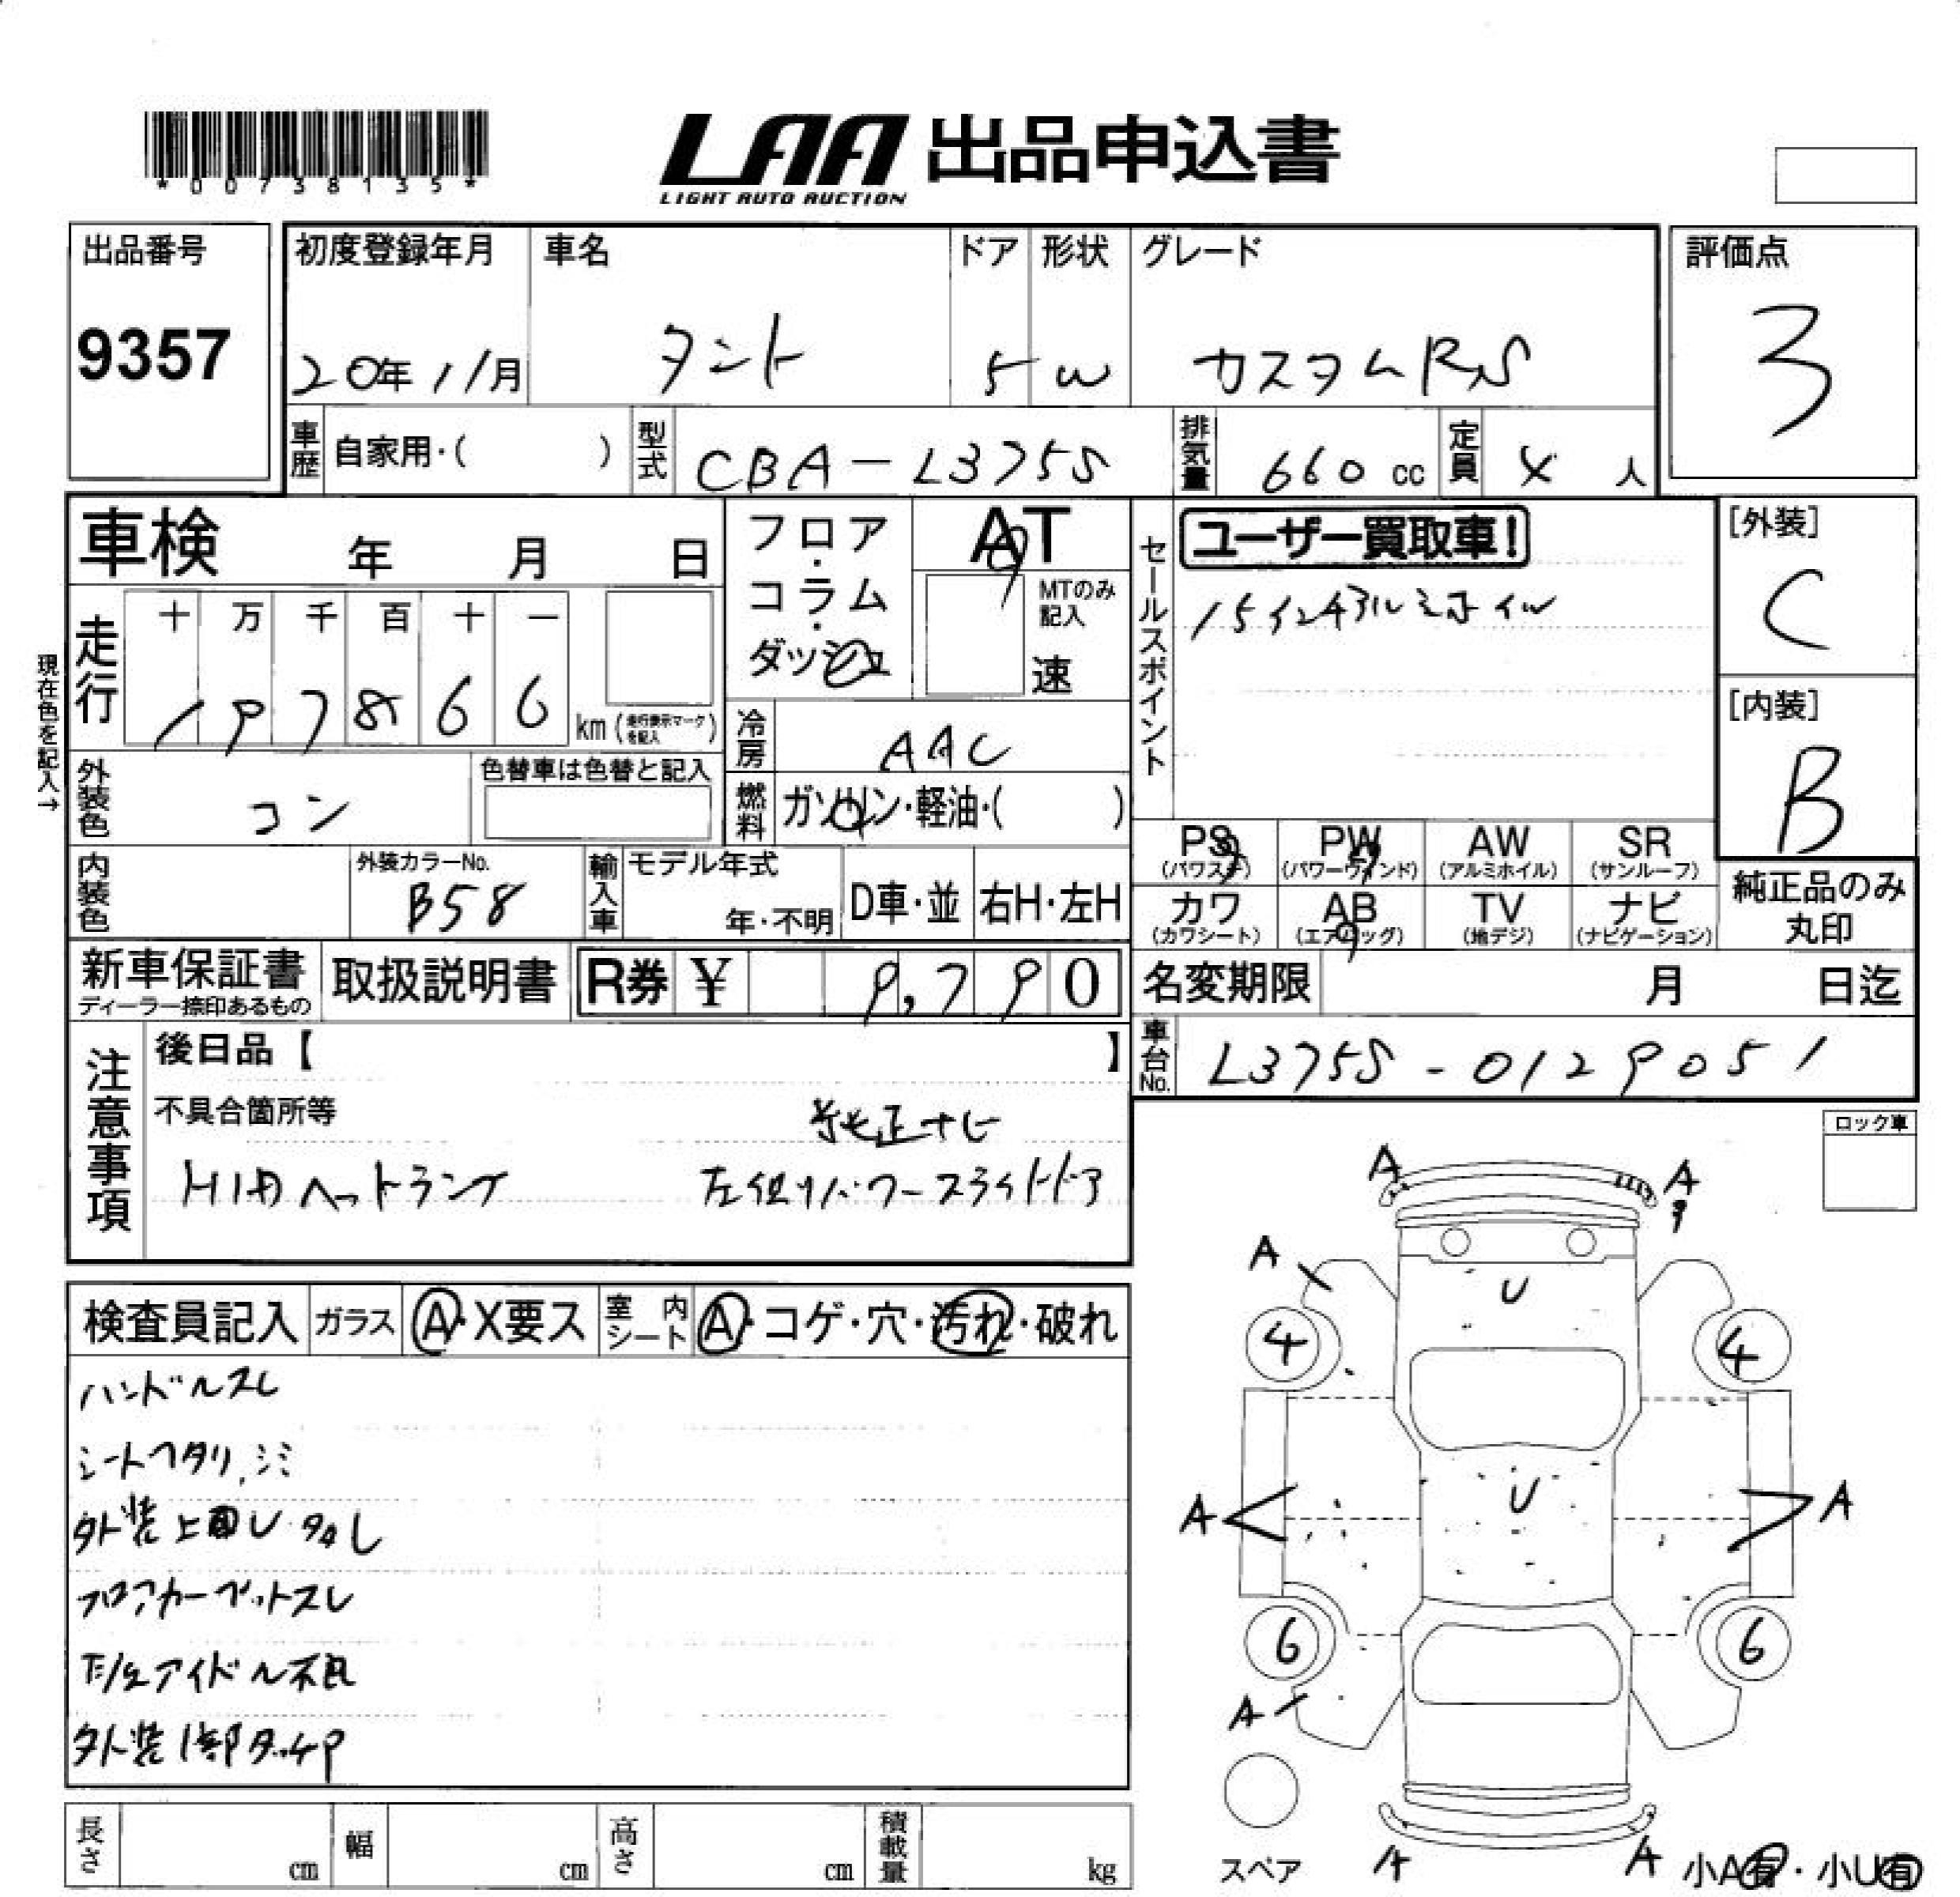 *00738135*
LAA 出品申込書
LIGHT AUTO AUCTION
出品番号 9357
初度登録年月 20年11月
車名 タント
ドア 5
形状 W
グレード カスタムRS
評価点 3
車歴 自家用・( )
型式 CBA-L375S
排気量 660 cc
定員 4 人
車検 年 月 日
フロア・コラム・ダッシュ
AT
MTのみ記入
速
セールスポイント
ユーザー買取車!
15インチアルミホイル
[外装] C
[内装] B
現在色を記入→
走行
十 万 千 百 十 一
1 9 7 8 6 6 km (走行表示マークを記入)
冷房 AAC
外装色 コン
色替車は色替と記入
燃料 ガソリン・軽油・( )
内装色
外装カラーNo. B58
輸入車 モデル年式 年・不明
D車・並
右H・左H
PS (パワステ)
PW (パワーウィンド)
AW (アルミホイル)
SR (サンルーフ)
カワ (カワシート)
AB (エアバッグ)
TV (地デジ)
ナビ (ナビゲーション)
純正品のみ丸印
新車保証書
ディーラー捺印あるもの
取扱説明書
R券 ¥ 9,790
名変期限 月 日迄
車台No. L375S-0129051
注意事項
後日品【 】
不具合箇所等
純正ナビ
HIDヘットランプ 左側リパワースライドドア
ロック車
検査員記入
ガラス A・X要ス
室内シート A・コゲ・穴・汚れ・破れ
ハンドルスレ
シートヘタリ,シミ
外装上面U 多し
フロアカーペットスレ
アイドル不良
外装1部タッチP
A A
A
U
4 4
U
A A
6 6
A
スペア
A A
小A有・小U有
長さ cm
幅 cm
高さ cm
積載量 kg